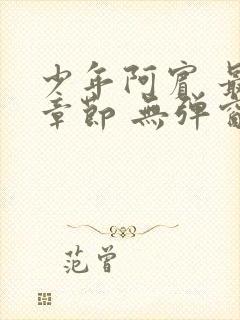 少年阿賓 最
章節 無彈窗
范曾